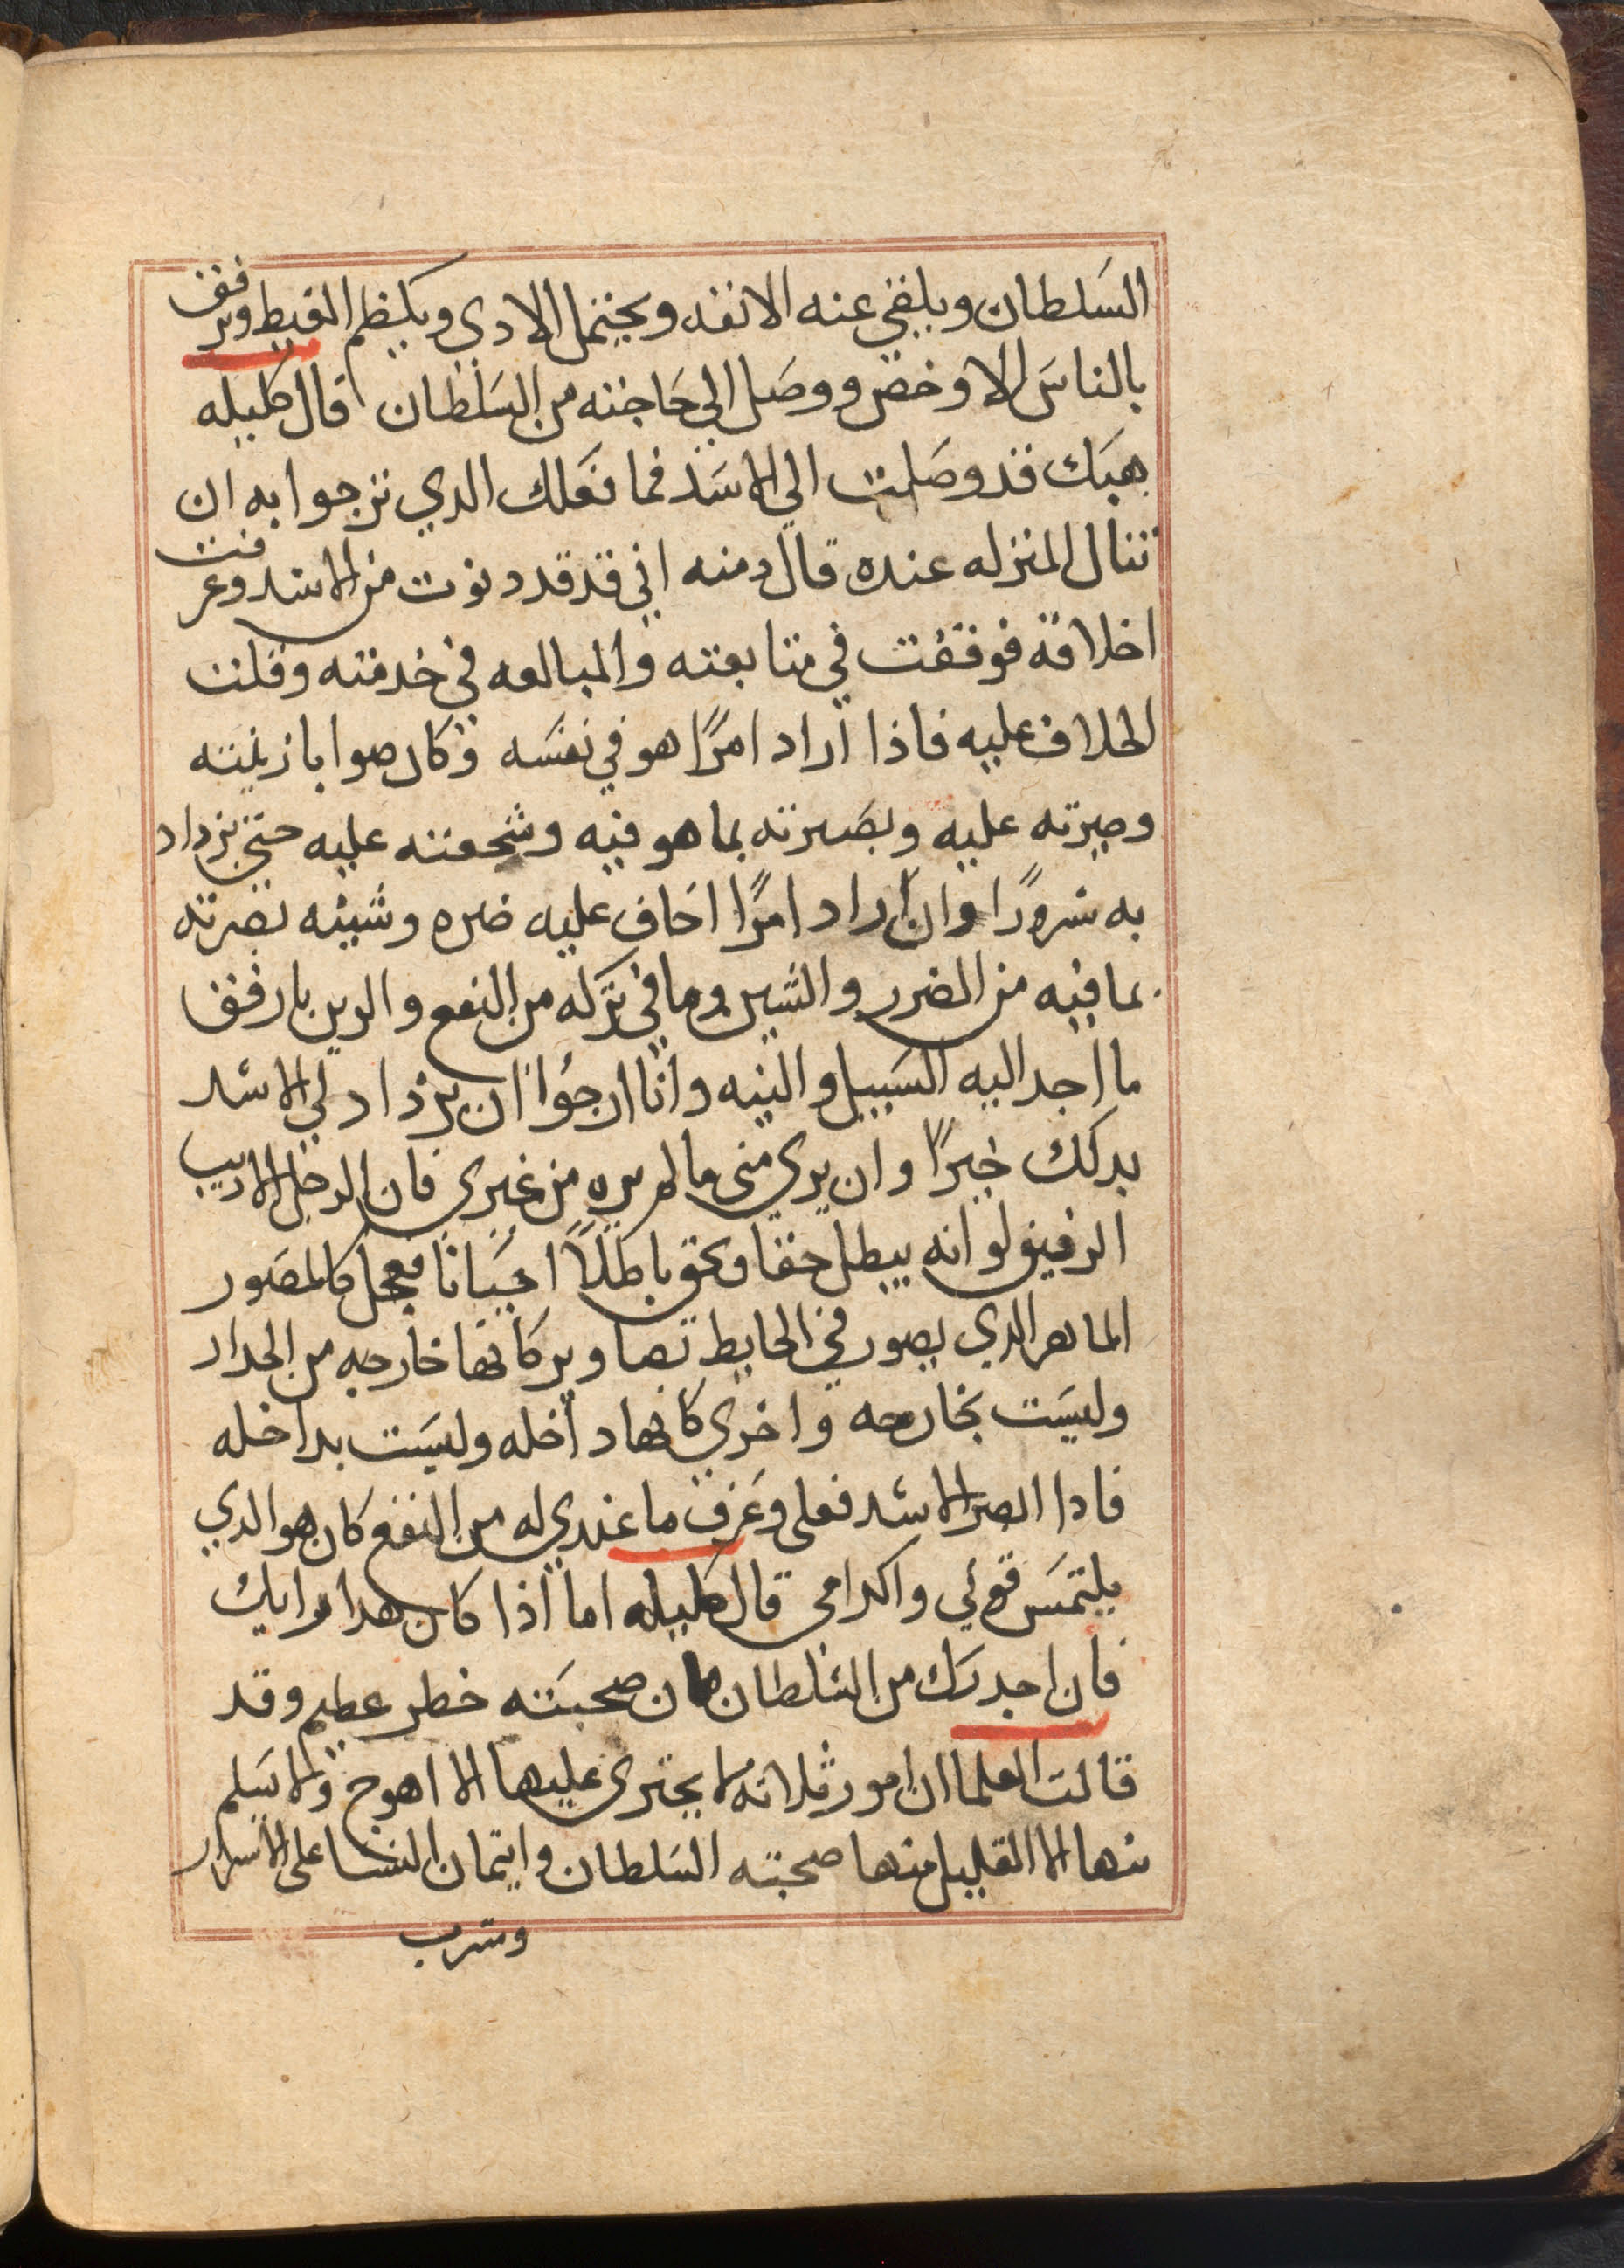 السلطان ويلقي عنه الانفه ويحتمل الادي ويكظم الغيط ويرفق
بالناس الا وخض ووصل الي حاجته من السلطان قال كليله
هبك قد وصلت الي الاسد فما فعلك الدي ترجوا به ان
تنال المنزله عنده قال دمنه اني قد قد دنوت من الاسد وعرفت
اخلاقه فوقفت في متابعته والمبالعه في خدمته وقلت
الخلاف عليه فاذا اراد امرًا هو في نفسه وكان صوابا زينته
وصيرته عليه وبصرته بما هو فيه وشجعته عليه حتي يزداد
به سرورًا وان اراد امرًا اخاف عليه ضره وشينه بصرته
بما فيه من الضرر والشين وما في تركه من النفع والزين بارفق
ما اجد اليه السبيل والنيه وانا ارجوا ان يزداد لي الاسد
بدلك خيرًا وان يري مني ما لم يره من غيري فان الرجل الاديب
الرفيق لو انه يبطل حقا ويحق باطلاً احيانا فعجل كالمصور
الماهر الدي يصور في الحايط تصاوير كانها خارجه من الجدار
وليست بخارجه واخري كانها داخله وليست بداخله
فادا ابصر الاسد فعلى وعرف ما عندي له من النفع كان هو الدي
يلتمس قوئي واكرامي قال كليله اما اذا كان هدا رايك
فان احدرك من السلطان فان صحبته خطر عطيم وقد
قالت العلما ان امور ثلاثه لا يجترى عليها الا اهوج ولا يسلم
منها الا القليل منها صحبته السلطان وايتمان النسا على الاسرار
وشرب